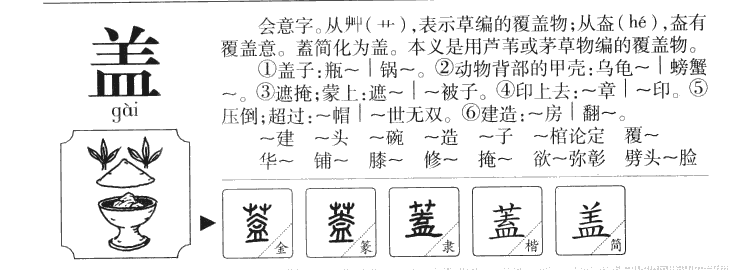 盖
gài
会意字。从艸(艹),表示草编的覆盖物;从盍(hé),盍有
覆盖意。蓋简化为盖。本义是用芦苇或茅草物编的覆盖物。
①盖子:瓶～｜锅～。②动物背部的甲壳:乌龟～｜螃蟹
～。③遮掩;蒙上:遮～｜～被子。④印上去:～章｜～印。⑤
压倒;超过:～帽｜～世无双。⑥建造:～房｜翻～。
～建 ～头 ～碗 ～造 ～子 ～棺论定 覆～
华～ 铺～ 膝～ 修～ 掩～ 欲～弥彰 劈头～脸
蓋 金 蓋 篆 蓋 隶 蓋 楷 盖 简